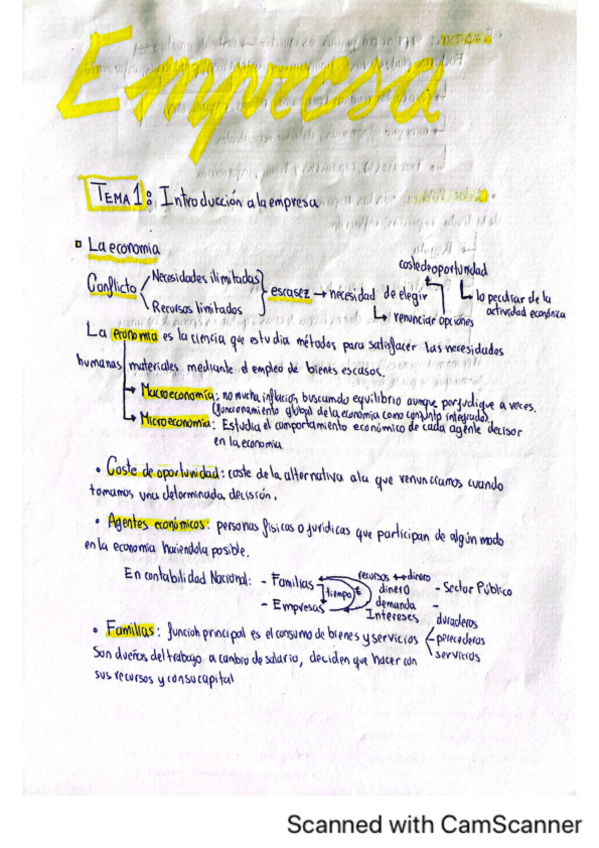 Empresa
TEMA 1: Introducción a la empresa
La economía
costedeoportunidad
Conflicto
Necesidades ilimitadas
Recursos limitados
escasez → necesidad de elegir
lo peculiar de la
actividad económica
renunciar opciones
La economia es la ciencia que estudia métodos para satisfacer las necesidades
humanas materiales mediante el empleo de bienes escasos.
→ Macroeconomía: no mucha inflacion buscando equilibrio aunque perjudique a veces.
(funcionamiento global de la economía como conjunto integrado).
→ Microeconomía: Estudia el comportamiento económico de cada agente decisor
en la economía
• Coste de oportunidad: coste de la alternativa a la que renunciamos cuando
tomamos una determinada decisión.
• Agentes económicos: personas físicas o jurídicas que participan de algún modo
en la economía haciendola posible.
En contabilidad Nacional: - Familias
recursos ↔ dinero
tiempo
dinero
- Sector Público
- Empresas
demanda
-
Intereses
duraderos
• Familias: función principal es el consumo de bienes y servicios
perecederas
servicios
Son dueños del trabajo a cambio de salario, deciden que hacer con
sus recursos y con su capital
Scanned with CamScanner